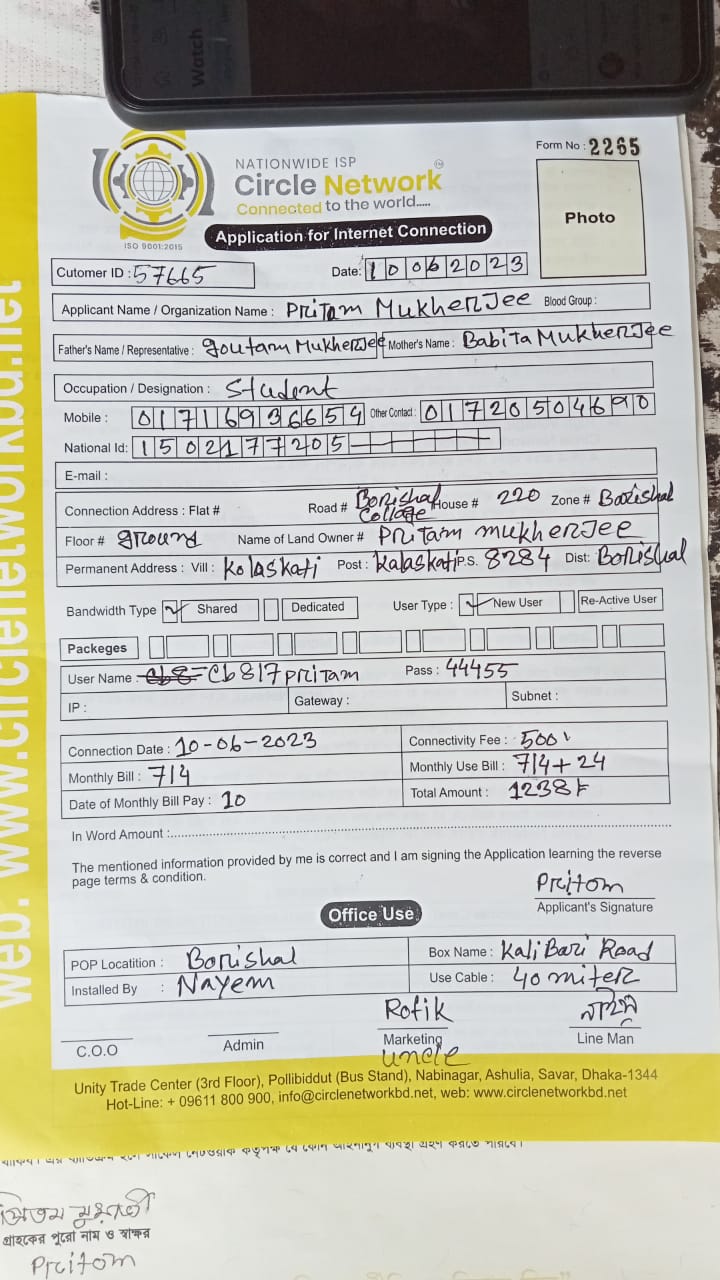 Watch
web. www.circlenetworkbd.net
Form No : 2265
NATIONWIDE ISP
Circle Network
Connected to the world.....
ISO 9001:2015
Application for Internet Connection
Photo
Cutomer ID : 57665 Date: 10062023
Applicant Name / Organization Name : Pritam Mukherjee Blood Group :
Father's Name / Representative : Goutam Mukherjee Mother's Name : Babita Mukherjee
Occupation / Designation : Student
Mobile : 01716936654 Other Contact : 01720504690
National Id: 1502177205
E-mail :
Connection Address : Flat # Road # Borishal College House # 220 Zone # Borishal
Floor # ground Name of Land Owner # Pritam mukherjee
Permanent Address : Vill : Kolaskati Post : Kalaskati P.S. 8284 Dist: Borishal
Bandwidth Type Shared Dedicated User Type : New User Re-Active User
Packeges
User Name : Cb817pritam Pass : 44455
IP : Gateway : Subnet :
Connection Date : 10-06-2023 Connectivity Fee : 500
Monthly Bill : 714 Monthly Use Bill : 714+24
Date of Monthly Bill Pay : 10 Total Amount : 1238
In Word Amount :
The mentioned information provided by me is correct and I am signing the Application learning the reverse
page terms & condition.
Pritom
Applicant's Signature
Office Use
POP Locatition : Borishal Box Name : Kali Bari Road
Installed By : Nayem Use Cable : 40 miter
Rofik নাইম
C.O.O Admin Marketing Line Man
uncle
Unity Trade Center (3rd Floor), Pollibiddut (Bus Stand), Nabinagar, Ashulia, Savar, Dhaka-1344
Hot-Line: + 09611 800 900, info@circlenetworkbd.net, web: www.circlenetworkbd.net
গ্রাহকের পুরো নাম ও স্বাক্ষর
Pritom